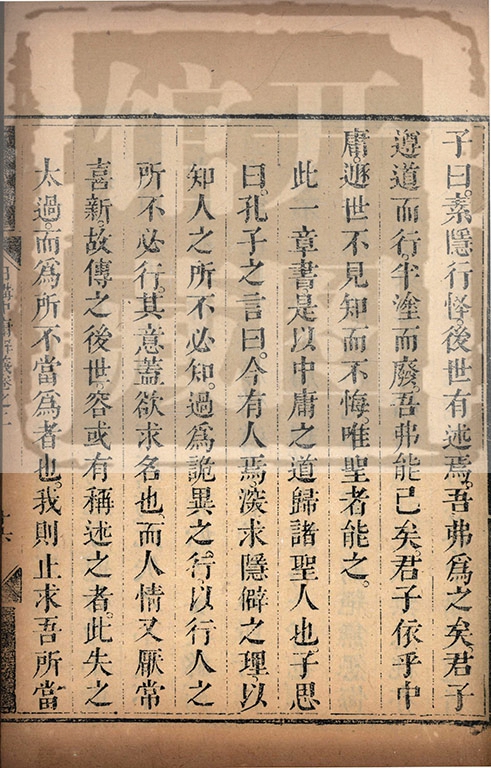 子曰。素隱行怪後世有述焉。吾弗爲之矣。君子
遵道而行。半塗而廢。吾弗能已矣。君子依乎中
庸。遯世不見知而不悔。唯聖者能之。
此一章書是以中庸之道歸諸聖人也子思
曰。孔子之言曰。今有人焉。深求隱僻之理。以
知人之所不必知。過爲詭異之行。以行人之
所不必行。其意蓋欲求名也而人情又厭常
喜新。故傳之後世。容或有稱述之者。此失之
太過。而爲所不當爲者也。我則止求吾所當